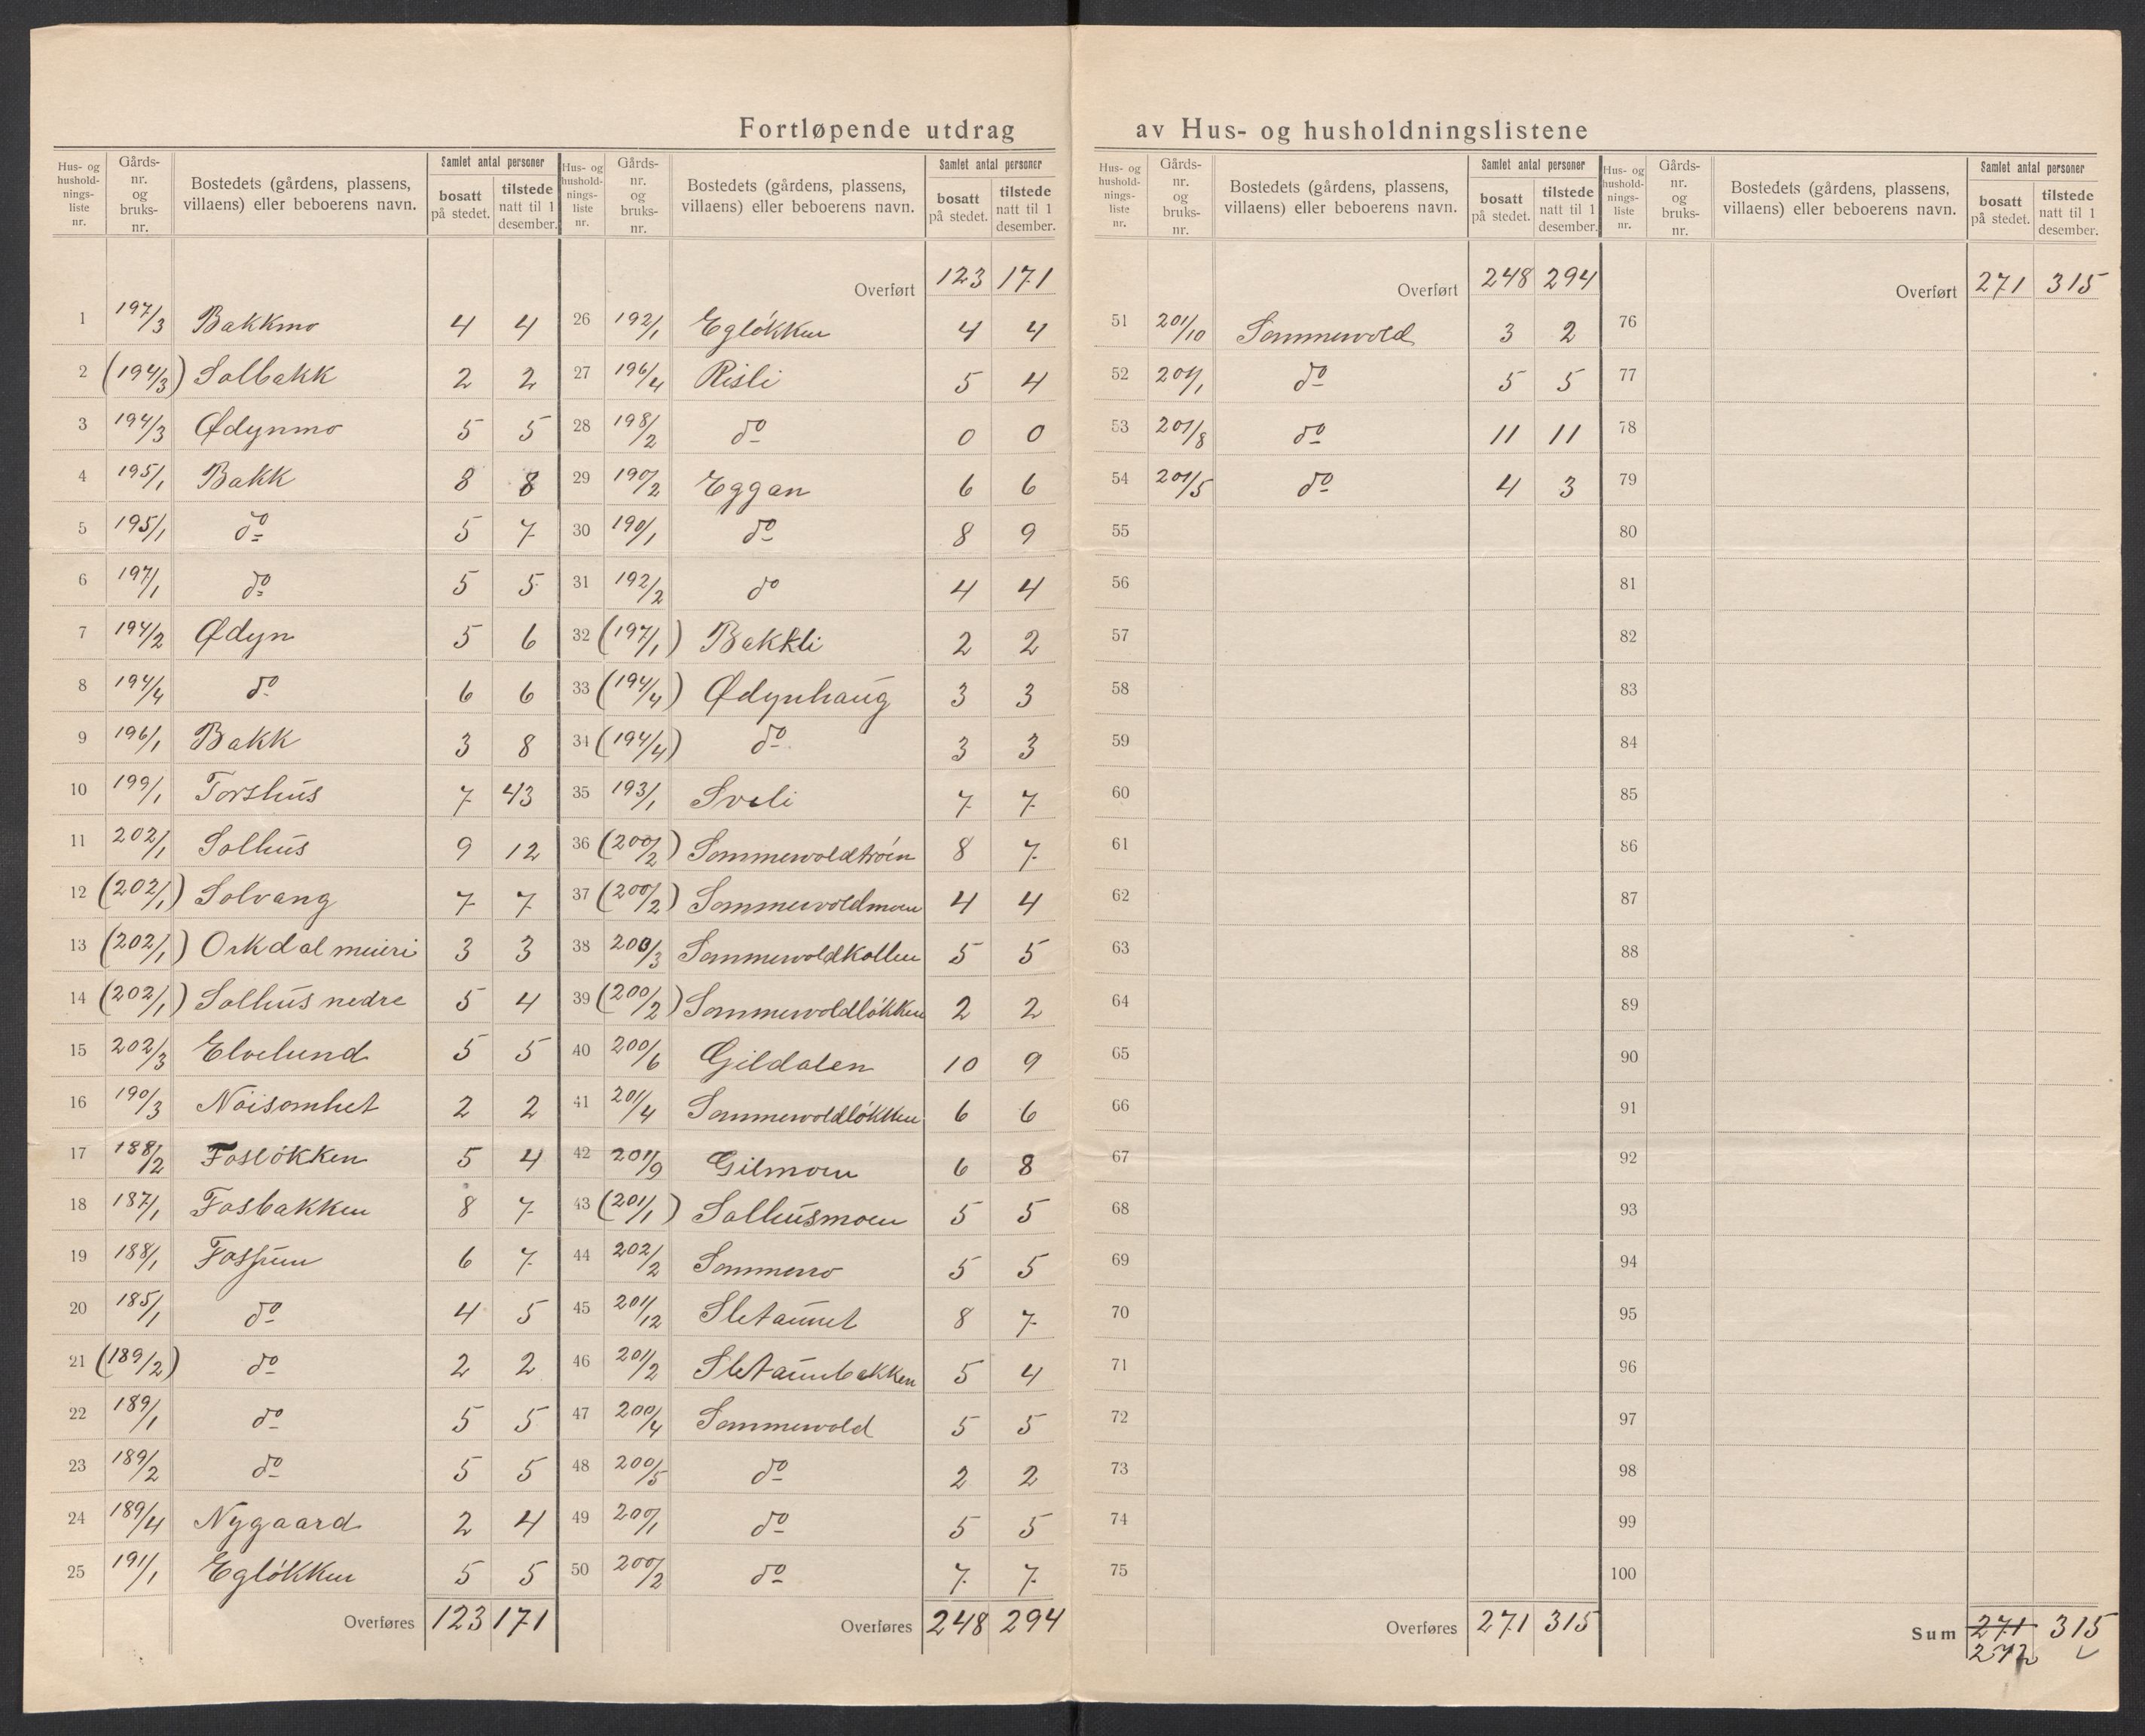 Fortløpende utdrag av Hus- og husholdningslistene
Hus- og hushold-nings-liste nr. | Gårds-nr. og bruks-nr. | Bostedets (gårdens, plassens, villaens) eller beboerens navn. | Samlet antal personer | bosatt på stedet. | tilstede natt til 1 desember.
1 197/3 Bakkmo 4 4
2 (194/3) Solbakk 2 2
3 194/3 Ødynmo 5 5
4 195/1 Bakk 8 8
5 195/1 do 5 7
6 197/1 do 5 5
7 194/2 Ødyn 5 6
8 194/4 do 6 6
9 196/1 Bakk 3 8
10 199/1 Torshus 7 43
11 202/1 Solhus 9 12
12 (202/1) Solvang 7 7
13 (202/1) Orkdal meieri 3 3
14 (202/1) Solhus nedre 5 4
15 202/3 Elvelund 5 5
16 190/3 Nøisomhet 2 2
17 188/2 Fosløkken 5 4
18 187/1 Fosbakken 8 7
19 188/1 Fossum 6 7
20 185/1 do 4 5
21 (189/2) do 2 2
22 189/1 do 5 5
23 189/2 do 5 5
24 189/4 Nygaard 2 4
25 191/1 Egløkken 5 5
Overføres 123 171
Hus- og hushold-nings-liste nr. | Gårds-nr. og bruks-nr. | Bostedets (gårdens, plassens, villaens) eller beboerens navn. | Samlet antal personer | bosatt på stedet. | tilstede natt til 1 desember.
Overført 123 171
26 192/1 Egløkken 4 4
27 196/4 Risli 5 4
28 198/2 do 0 0
29 190/2 Eggan 6 6
30 190/1 do 8 9
31 192/2 do 4 4
32 (197/1) Bakkli 2 2
33 (194/4) Ødynhaug 3 3
34 (194/4) do 3 3
35 193/1 Sveli 7 7
36 (200/2) Sommervoldtrøen 8 7
37 (200/2) Sommervoldmoen 4 4
38 200/3 Sommervoldkollen 5 5
39 (200/2) Sommervoldløkken 2 2
40 200/6 Gildalen 10 9
41 201/4 Sommervoldløkken 6 6
42 201/9 Gilmoen 6 8
43 (201/1) Solhusmoen 5 5
44 202/2 Sommerro 5 5
45 201/12 Sletaunet 8 7
46 201/2 Sletaunbakken 5 4
47 200/4 Sommervold 5 5
48 200/5 do 2 2
49 200/1 do 5 5
50 200/2 do 7 7
Overføres 248 294
Hus- og hushold-nings-liste nr. | Gårds-nr. og bruks-nr. | Bostedets (gårdens, plassens, villaens) eller beboerens navn. | Samlet antal personer | bosatt på stedet. | tilstede natt til 1 desember.
Overført 248 294
51 201/10 Sommervold 3 2
52 201/1 do 5 5
53 201/8 do 11 11
54 201/5 do 4 3
55
56
57
58
59
60
61
62
63
64
65
66
67
68
69
70
71
72
73
74
75
Overføres 271 315
Hus- og hushold-nings-liste nr. | Gårds-nr. og bruks-nr. | Bostedets (gårdens, plassens, villaens) eller beboerens navn. | Samlet antal personer | bosatt på stedet. | tilstede natt til 1 desember.
Overført 271 315
76
77
78
79
80
81
82
83
84
85
86
87
88
89
90
91
92
93
94
95
96
97
98
99
100
Sum 271 315
272